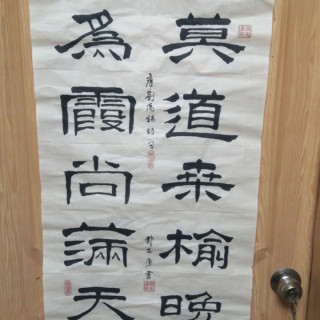 莫道桒榆晚
爲霞尚滿天
唐劉禹錫詩句